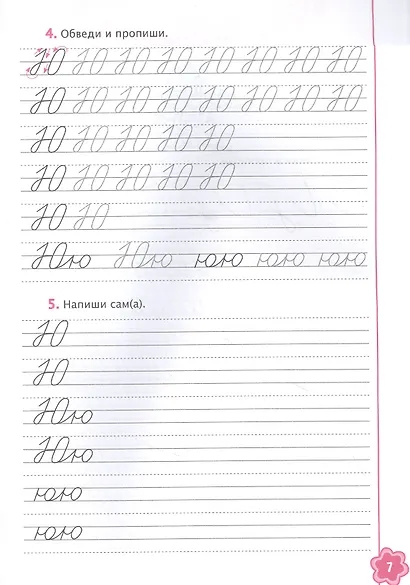 4. Обведи и пропиши.
Ю Ю Ю Ю Ю Ю Ю Ю
Ю Ю Ю Ю Ю Ю Ю Ю
Ю Ю Ю Ю Ю
Ю Ю Ю Ю Ю
Ю Ю
Юю Юю юю юю юю
5. Напиши сам(а).
Ю
Ю
Юю
Юю
юю
юю
7